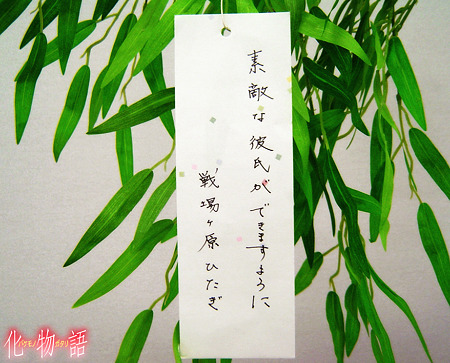 素敵な彼氏ができますように
戦場ヶ原ひたぎ
化物語